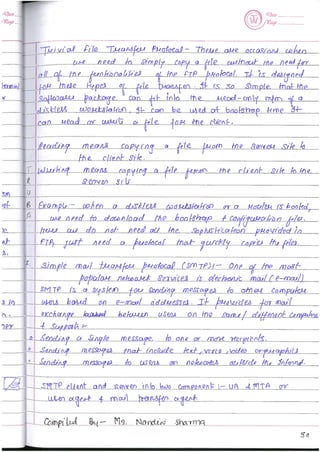 Date
Page
Date
Page
Trivial File Transfer Protocol - There are occasions when
we need to simply copy a file without the need for
all of the funtionalities of the FTP protocol. It is designed
for these types of file transfer. It is so simple that the
Software package can fit into the read-only mem of a
diskless workstation. It can be used at bootstrap time. It
can read or write a file for the client.
Reading means copying a file from the server site to
the client site.
Writing means copying a file from the client site to the
server site
Example - when a diskless workstation or a router is booted,
we need to download the bootstrap & configuration file.
Here we do not need all the sophistication provided in
FTP, just need a protocol that quickly copies the files.
Simple mail transfer protocol (SMTP):- One of the most
popular network services is electronic mail (e-mail)
SMTP is a system for sending messages to other computer
users based on e-mail addresses. It provides for mail
exchange between users on the same/different computers
& Supports :-
Sending a single message to one or more recipients.
Sending messages that include text, voice, video or graphics
Sending messages to users on networks outside the Internet.
SMTP client and server into two component :- UA & MTA or
user agent & mail transfer agent.
Compiled By:- Ms. Nandini Sharma